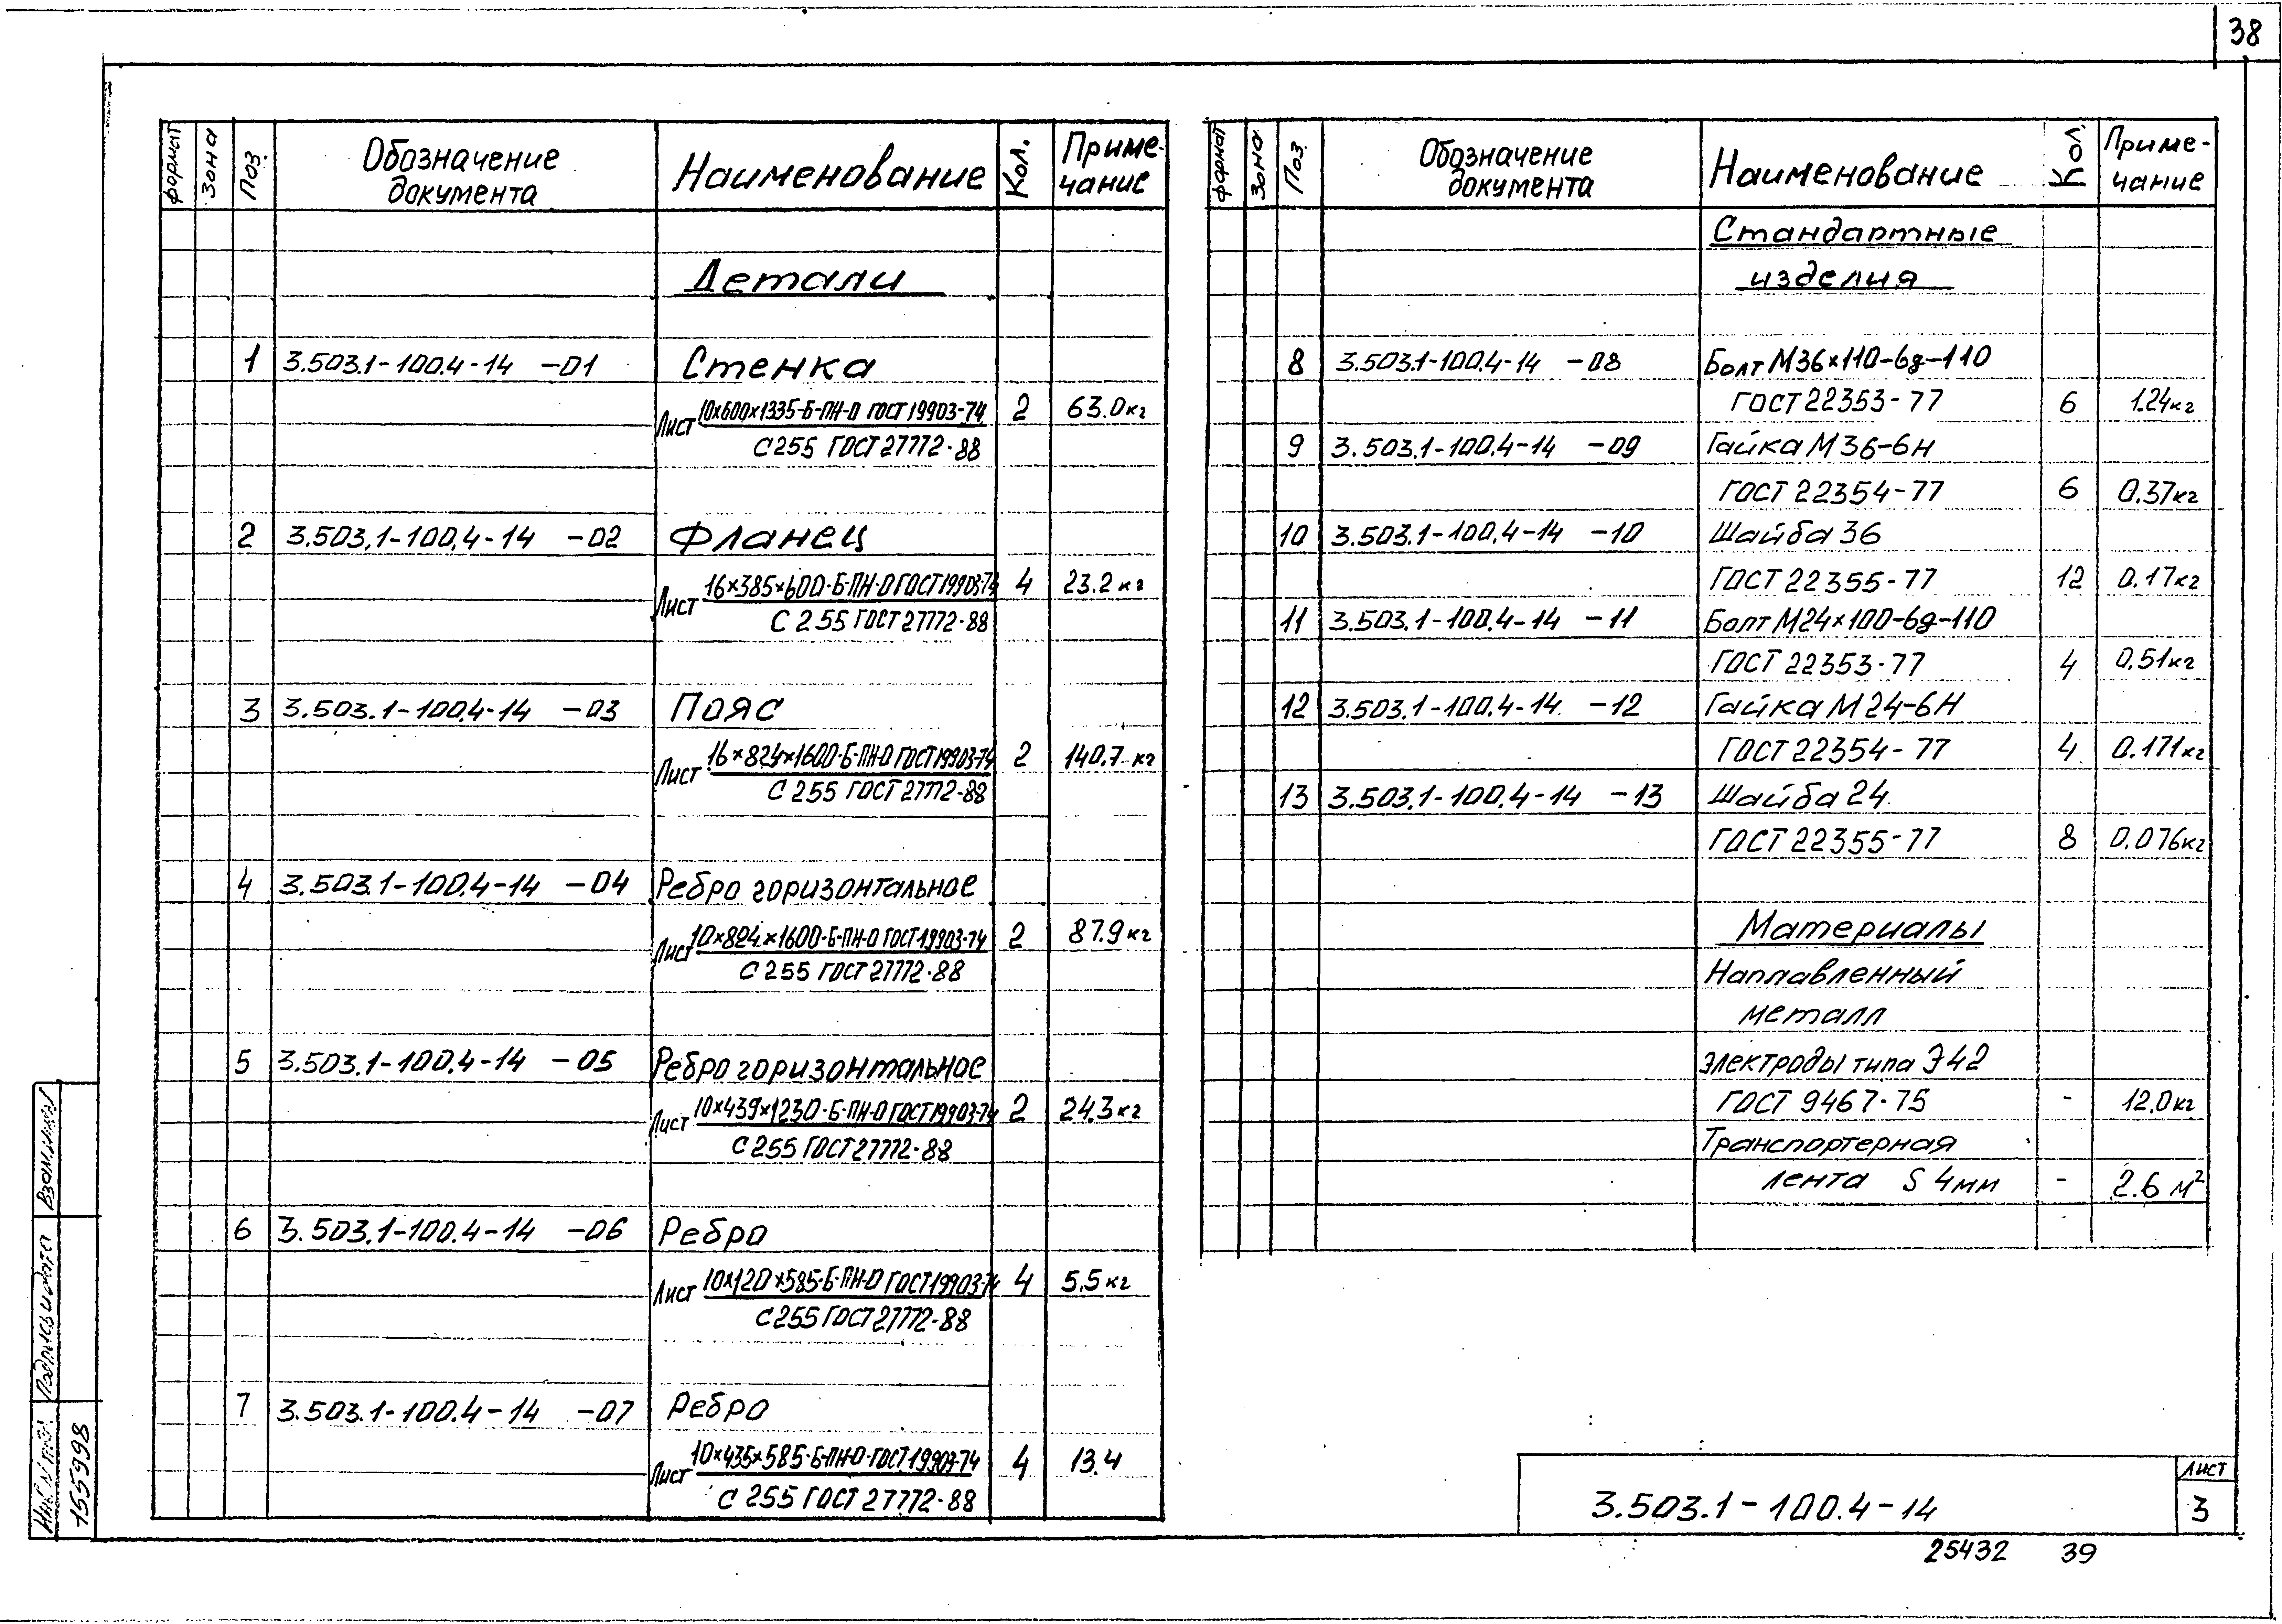 38
формат Зона Поз. Обозначение документа Наименование Кол. Приме-чание
Детали
1 3.503.1-100.4-14 -01 Стенка
Лист 10×600×1335-Б-ПН-О ГОСТ 19903-74 2 63.0кг
С255 ГОСТ 27772-88
2 3.503.1-100.4-14 -02 Фланец
Лист 16×385×600-Б-ПН-О ГОСТ 19903-74 4 23.2кг
С 255 ГОСТ 27772-88
3 3.503.1-100.4-14 -03 Пояс
Лист 16×824×1600-Б-ПН-О ГОСТ 19903-74 2 140.7 кг
С 255 ГОСТ 27772-88
4 3.503.1-100.4-14 -04 Ребро горизонтальное
Лист 10×824×1600-Б-ПН-О ГОСТ 19903-74 2 87.9кг
С 255 ГОСТ 27772-88
5 3.503.1-100.4-14 -05 Ребро горизонтальное
Лист 10×439×1230-Б-ПН-О ГОСТ 19903-74 2 24.3кг
С 255 ГОСТ 27772-88
6 3.503.1-100.4-14 -06 Ребро
Лист 10×120×585-Б-ПН-О ГОСТ 19903-74 4 5.5кг
С255 ГОСТ 27772-88
7 3.503.1-100.4-14 -07 Ребро
Лист 10×435×585-Б-ПН-О-ГОСТ 19903-74 4 13.4
С 255 ГОСТ 27772-88
формат Зона Поз. Обозначение документа Наименование Кол. Приме-чание
Стандартные
изделия
8 3.503.1-100.4-14 -08 Болт М36×110-6g-110
ГОСТ 22353-77 6 1.24кг
9 3.503.1-100.4-14 -09 Гайка М36-6Н
ГОСТ 22354-77 6 0.37кг
10 3.503.1-100.4-14 -10 Шайба 36
ГОСТ 22355-77 12 0.17кг
11 3.503.1-100.4-14 -11 Болт М24×100-6g-110
ГОСТ 22353-77 4 0.51кг
12 3.503.1-100.4-14 -12 Гайка М24-6Н
ГОСТ 22354-77 4 0.171кг
13 3.503.1-100.4-14 -13 Шайба 24
ГОСТ 22355-77 8 0.076кг
Материалы
Наплавленный
металл
Электроды типа Э42
ГОСТ 9467-75 - 12.0кг
Транспортерная
лента S 4мм - 2.6 м²
Инв.N подл. Подпись и дата Взам.инв.N
1559998
3.503.1-100.4-14
Лист
3
25432 39